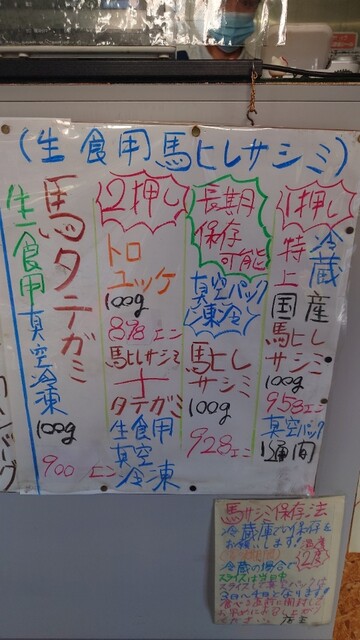 (生食用馬ヒレサシミ)
1押し
冷蔵
特上
国産
馬ヒレ
サシミ
100g
958エン
真空パック
1週間
長期
保存
可能
真空パック
冷冷
馬ヒレ
サシミ
100g
928エン
2押し
トロ
ユッケ
100g
898エン
馬ヒレサシミ
+
タテガミ
生食用
真空
冷凍
馬タテガミ
生食用
真空冷凍
100g
900エン
ハンバーグ
馬サシミ保存法
冷蔵庫で保存を
お願いします!
冷蔵の場合で